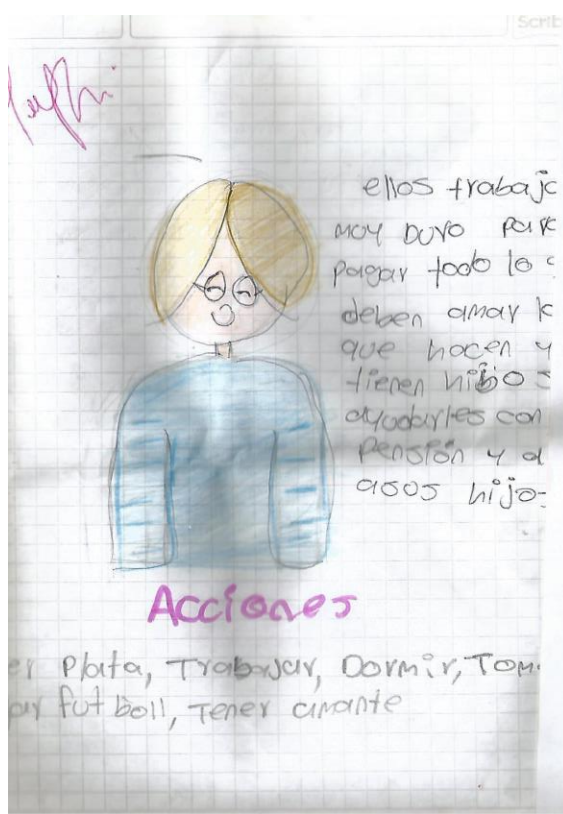 Scrib
ellos trabajc
muy DURO park
pagar todo lo
deben amar k
que hacen y
tienen hijos
ayudarles con
Pensión y a
asos hijos
Acciones
er Plata, Trabajar, Dormir, Tom
ar futboll, Tener amante